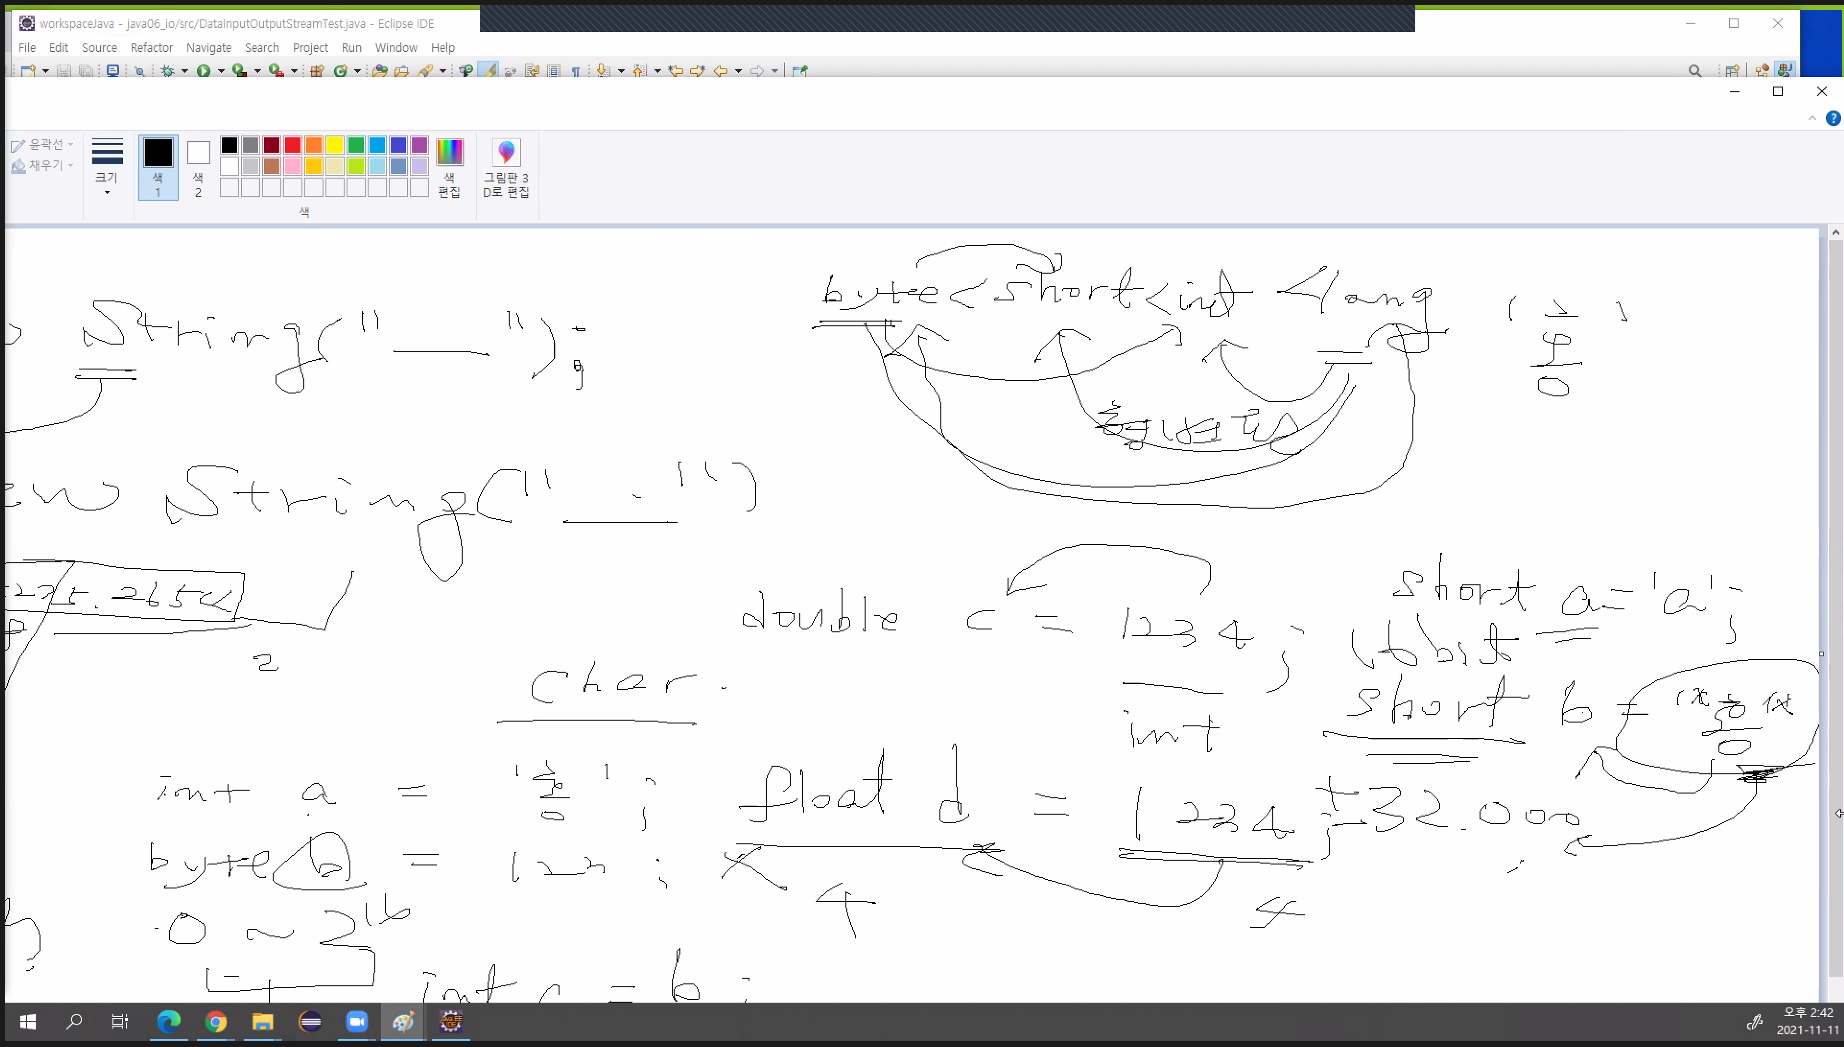 workspaceJava - java06_io/src/DataInputOutputStreamTest.java - Eclipse IDE
File Edit Source Refactor Navigate Search Project Run Window Help
윤곽선
채우기
크기
색
1
색
2
색
편집
그림판 3
D로 편집
색
byte < short < int < long
String(" ");
ew String(" . ")
2
double c = 1234;
int
short a = 'a';
16bit
short b =
char
int a = ' ';
float d = 1234;
32.000
byte b = 122;
4
4
0 ~ 2 16
int c = b;
오후 2:42
2021-11-11